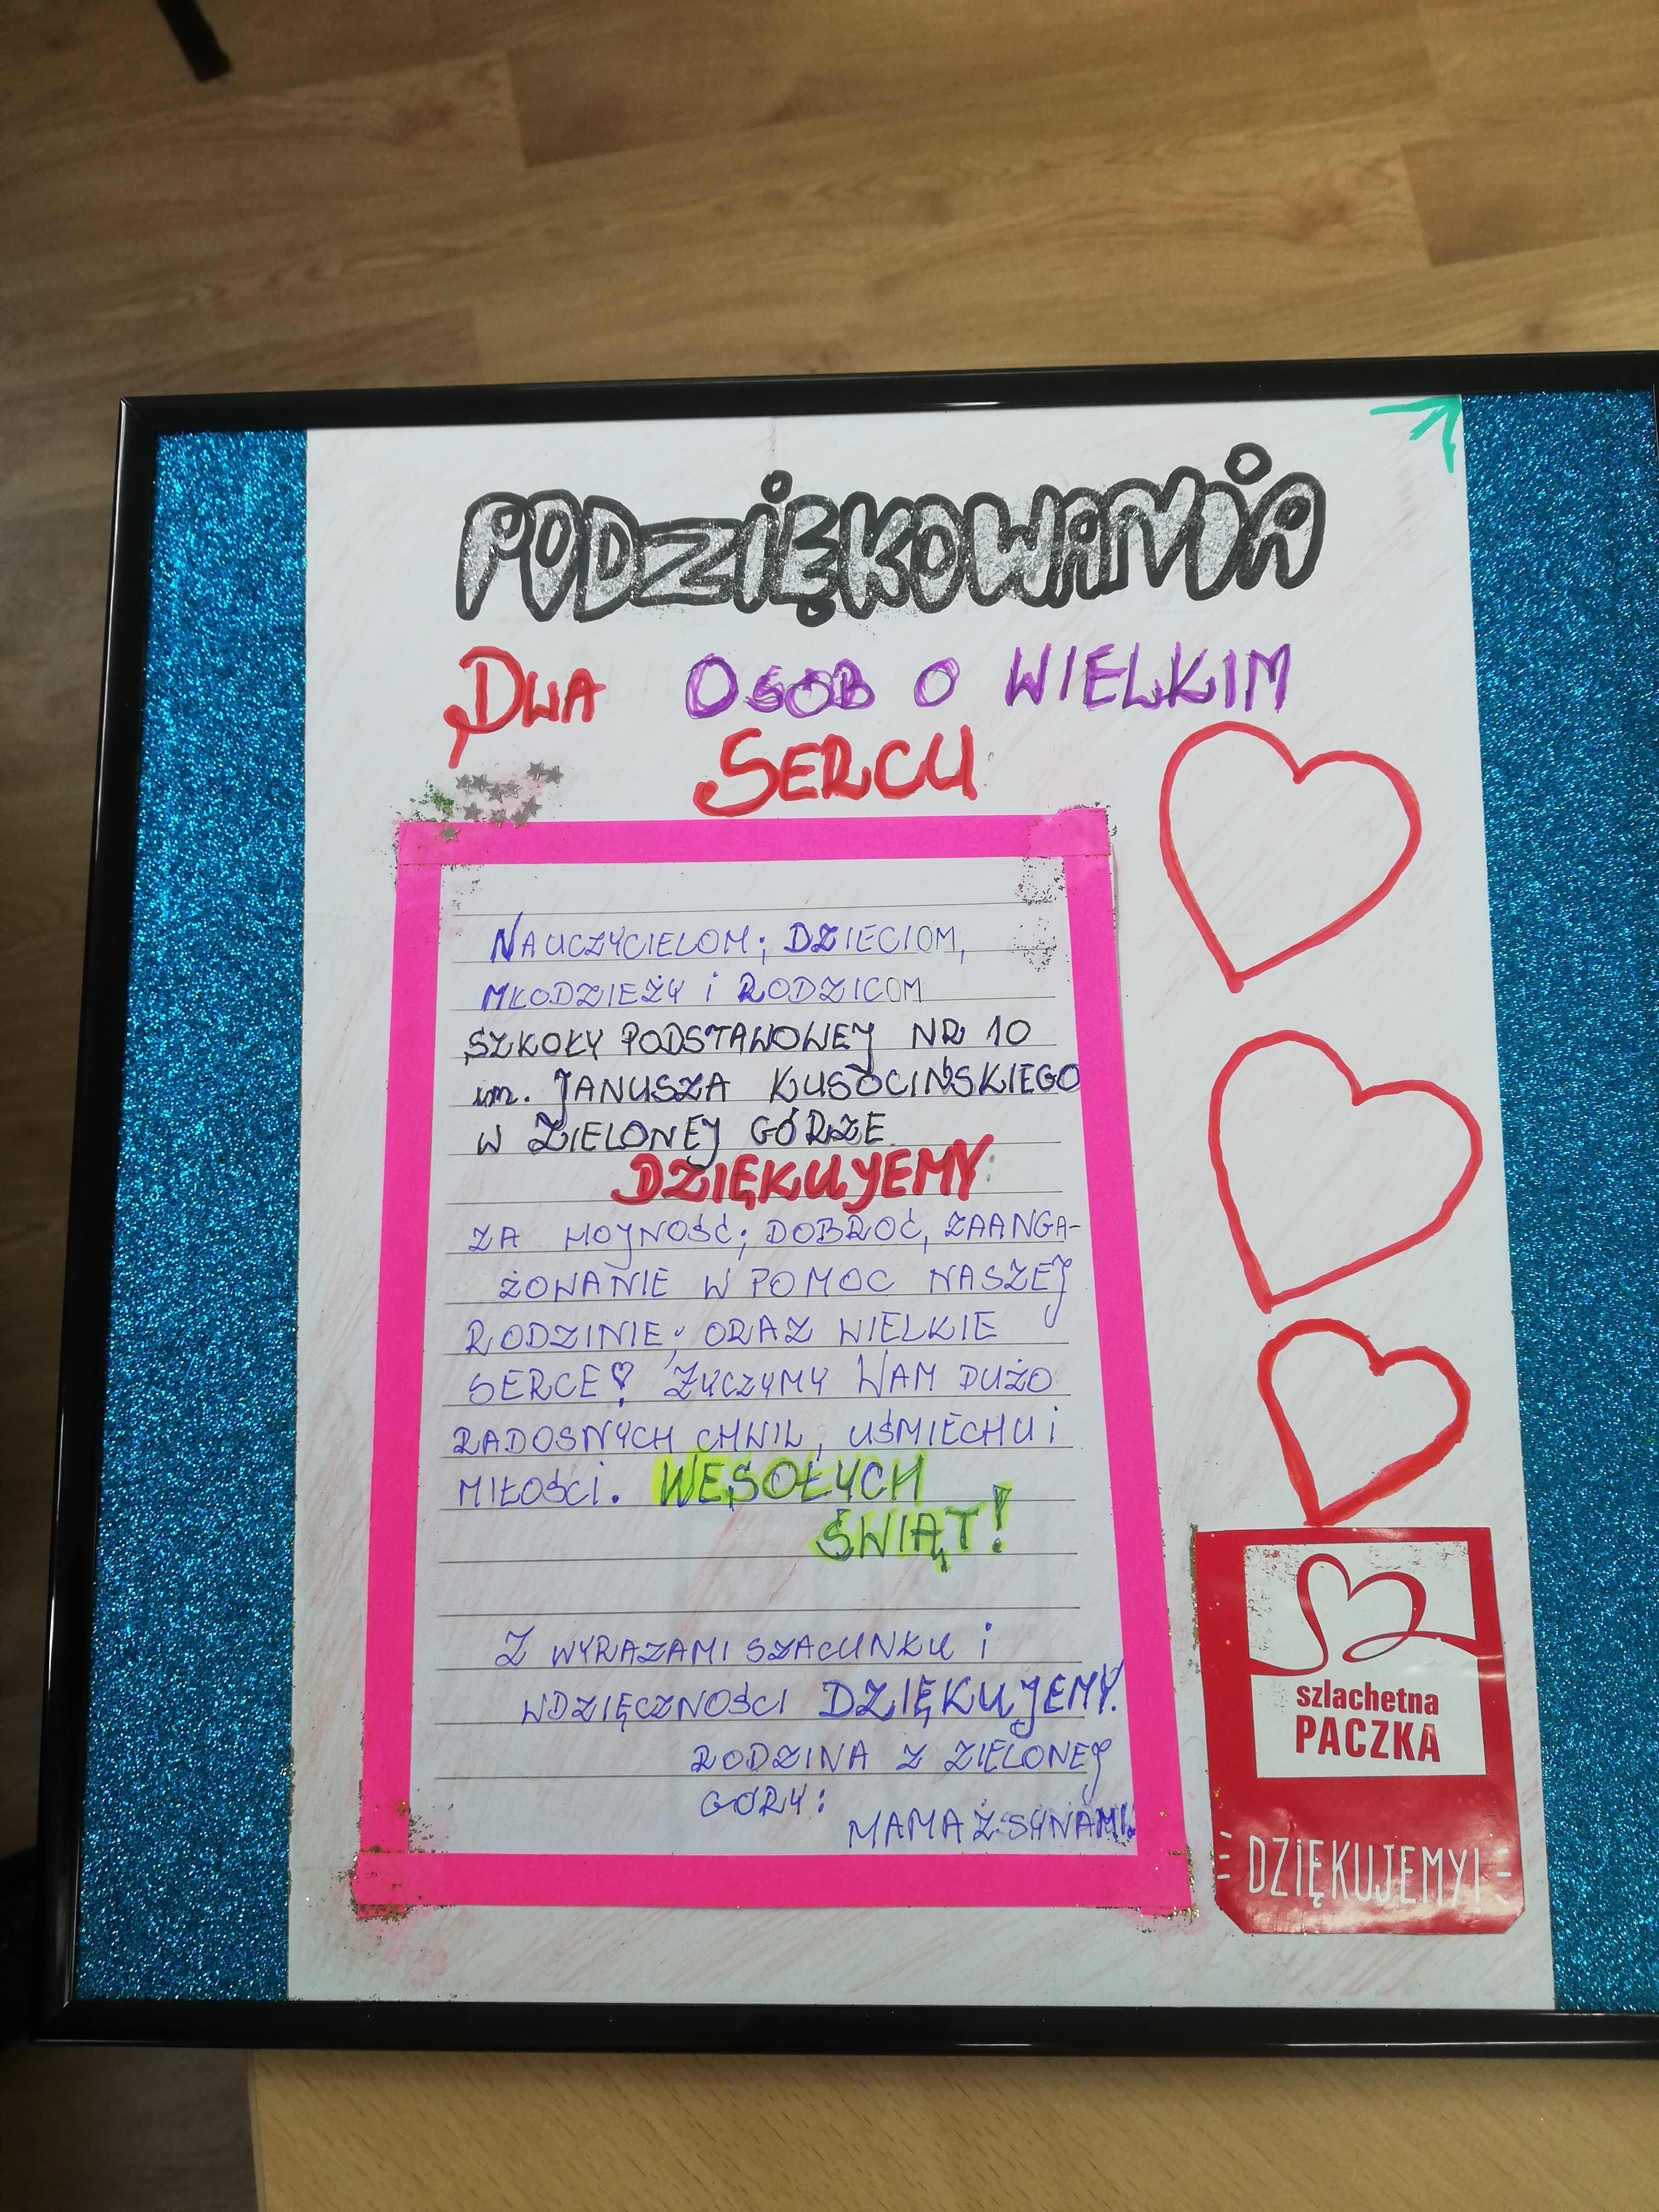 PODZIĘKOWANIA
DLA OSÓB O WIELKIM
SERCU
NAUCZYCIELOM; DZIECIOM,
MŁODZIEŻY i RODZICOM
SZKOŁY PODSTAWOWEJ NR 10
im. JANUSZA KUSOCIŃSKIEGO
W ZIELONEJ GÓRZE
DZIĘKUJEMY:
ZA HOJNOŚĆ; DOBROĆ, ZAANGA-
ŻOWANIE W POMOC NASZEJ
RODZINIE; ORAZ WIELKIE
SERCE♡! ŻYCZYMY WAM DUŻO
RADOSNYCH CHWIL, UŚMIECHU i
MIŁOŚCI. WESOŁYCH
ŚWIĄT!
Z WYRAZAMI SZACUNKU i
WDZIĘCZNOŚCI DZIĘKUJEMY.
RODZINA Z ZIELONEJ
GÓRY:
MAMA Z SYNAMI.
szlachetna
PACZKA
DZIĘKUJEMY!